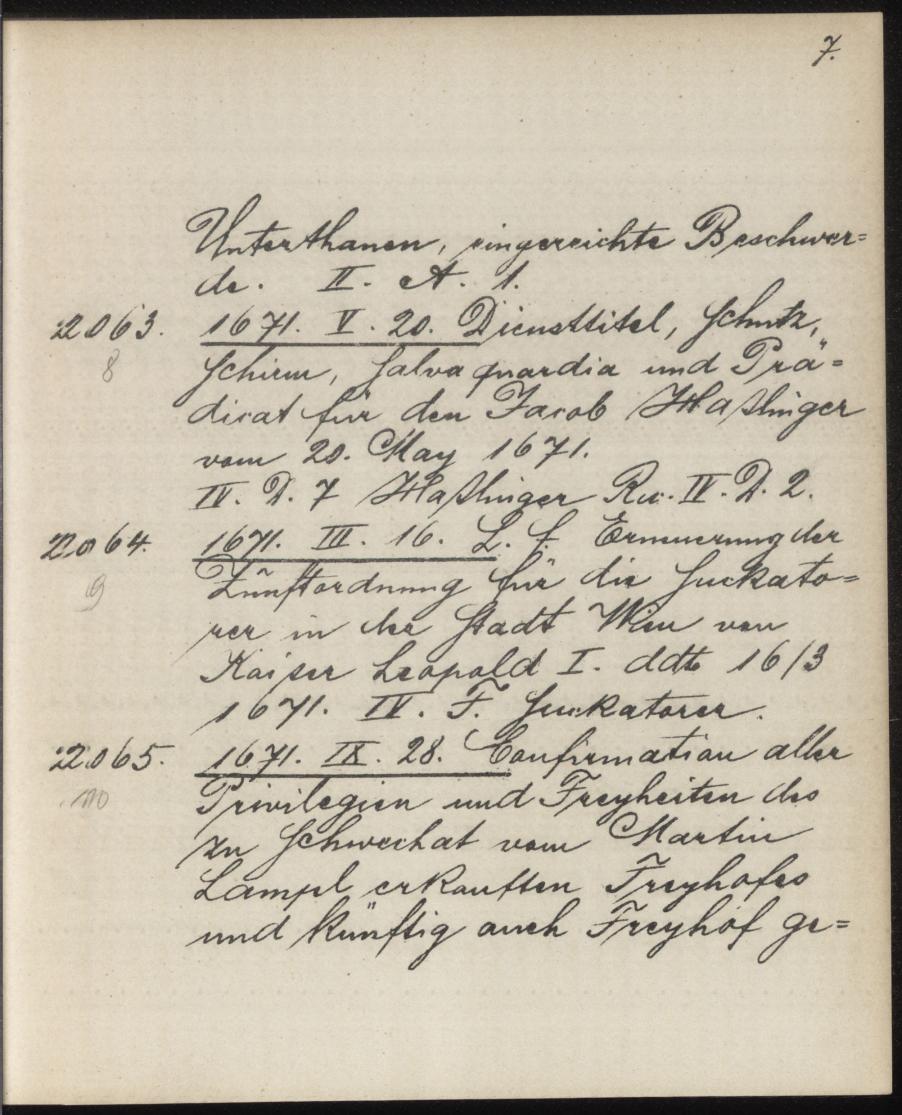 7.
Unterthanen, eingereichte Beschwer=
de. II. A. 1.
2063. 1671. V. 20. Diensttitel, Schutz,
8 Schirm, Salva quardia und Prä=
dicat für den Jacob Haßlinger
vom 20. May 1671.
IV. D. 7 Haßlinger Rev. IV. D. 2.
2064. 1671. III. 16. L. S. Erneuerung der
9 Zünftordnung für die Stuckato=
rer in der Stadt Wien von
Kaiser Leopold I. ddto 16/3
1671. IV. F. Stuckatorer.
2065. 1671. IX. 28. Confirmation aller
10 Privilegien und Freyheiten des
zu Schwechat vom Martin
Lampl erkauften Freyhofes
und künftig auch Freyhof ge=